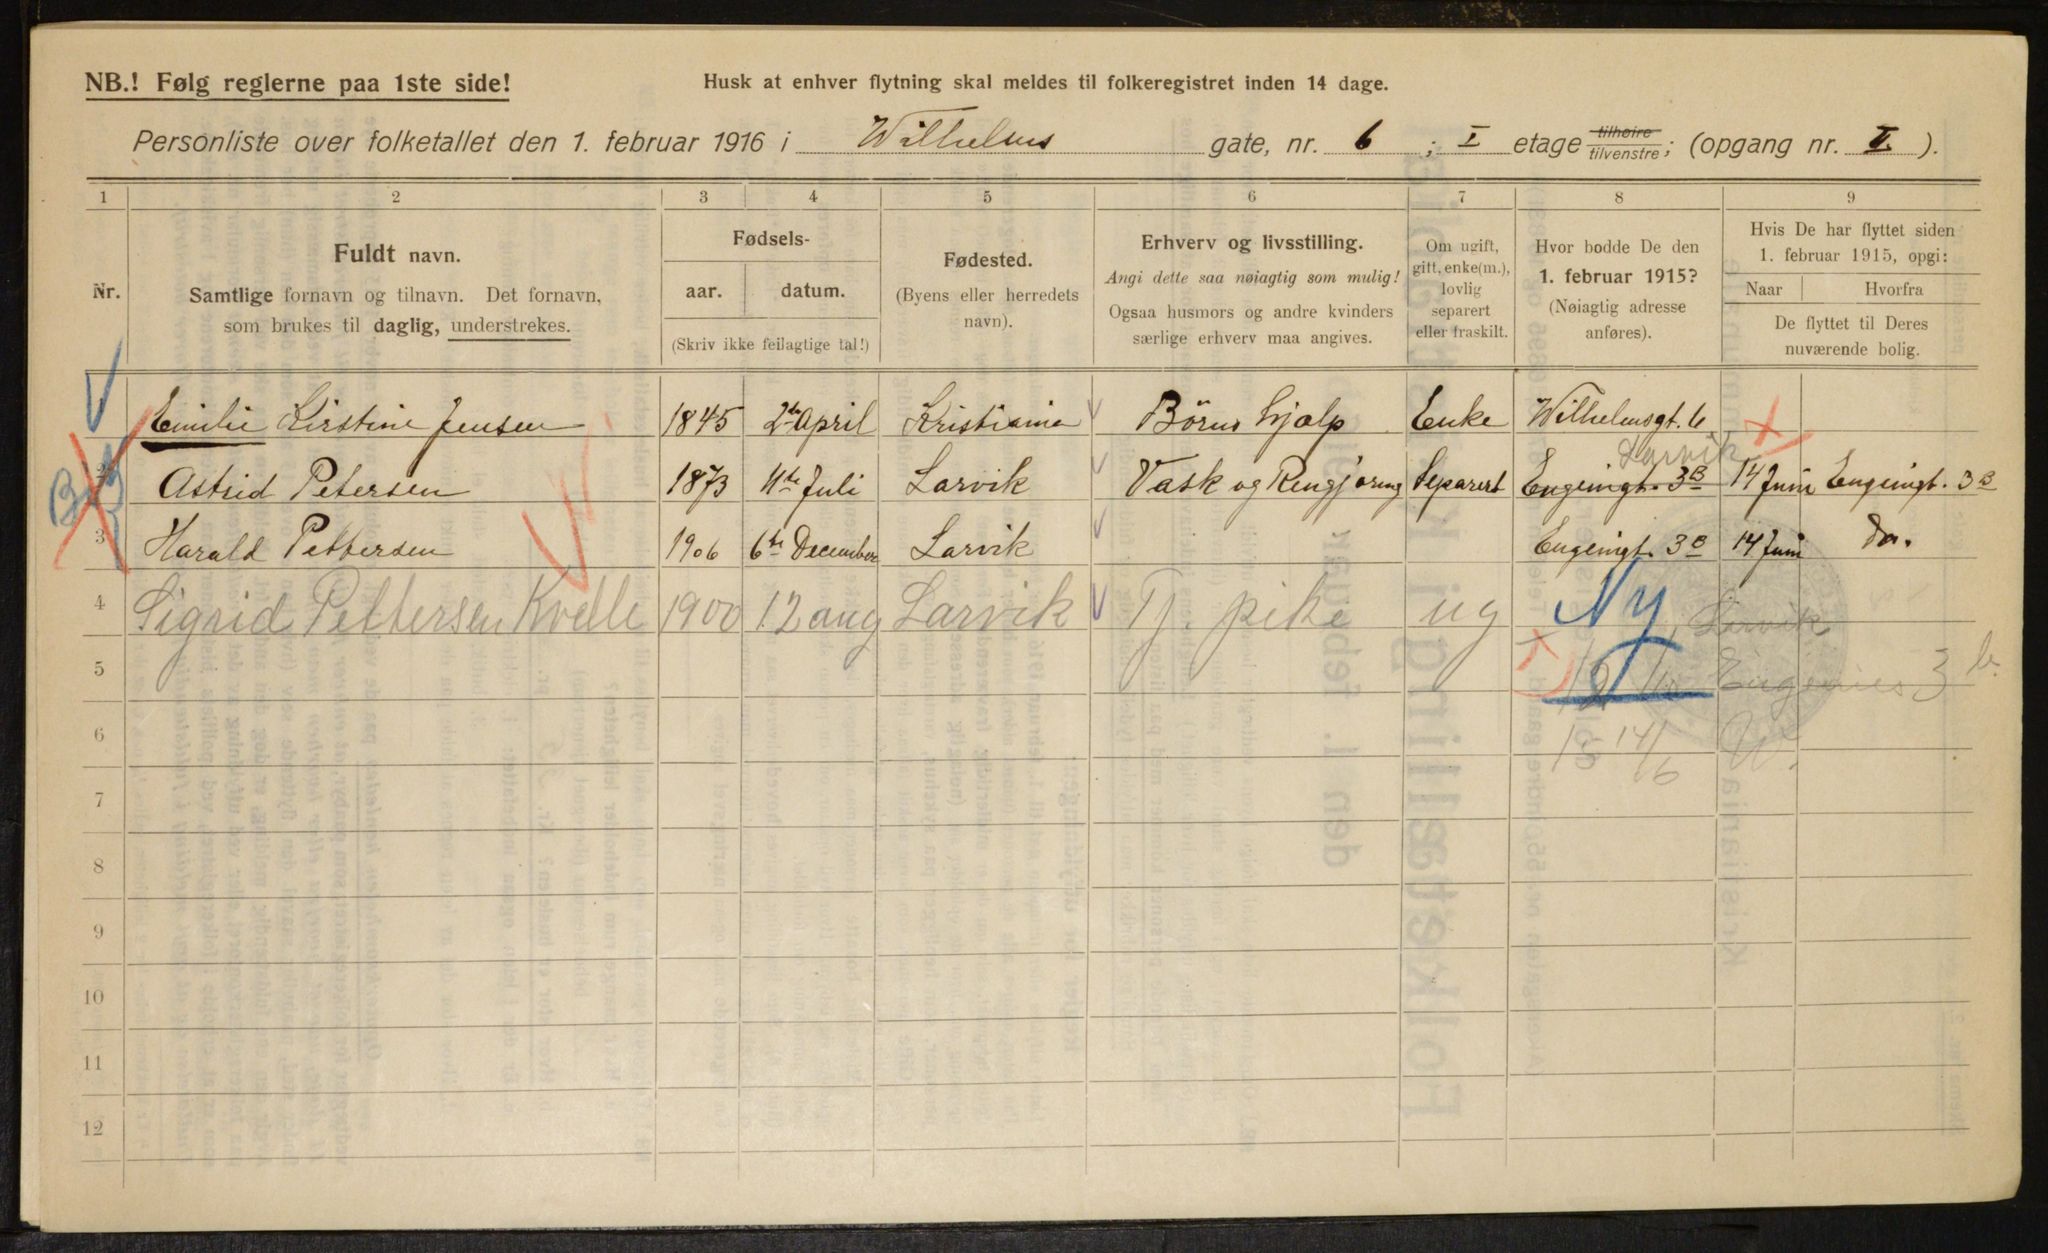 NB.! Følg reglerne paa 1ste side!
Husk at enhver flytning skal meldes til folkeregistret inden 14 dage.
Personliste over folketallet den 1. februar 1916 i Wilhelms gate, nr. 6 ; I etage tilhøire tilvenstre; (opgang nr. I. ).
1 2 3 4 5 6 7 8 9
Nr.
Fuldt navn.
Samtlige fornavn og tilnavn. Det fornavn,
som brukes til daglig, understrekes.
Fødsels-
aar. datum.
(Skriv ikke feilagtige tal!)
Fødested.
(Byens eller herredets
navn).
Erhverv og livsstilling.
Angi dette saa nøiagtig som mulig!
Ogsaa husmors og andre kvinders
særlige erhverv maa angives.
Om ugift,
gift, enke(m.),
lovlig
separert
eller fraskilt.
Hvor bodde De den
1. februar 1915?
(Nøiagtig adresse
anføres).
Hvis De har flyttet siden
1. februar 1915, opgi:
Naar Hvorfra
De flyttet til Deres
nuværende bolig.
Emilie Kirstine Jensen 1845 2den April Kristiania Börns hjælp Enke Wilhelmsgt. 6
Larvik
2 Astrid Petersen 1873 4de Juli Larvik Vask og Rengjøring Separert Engenigt. 3B 14 Juni Engenigt. 3B
3 Harald Pettersen 1906 6te December Larvik Engenigt. 3B 14 Juni Do.
4 Sigrid Pettersen Kvelle 1900 12 aug Larvik Tj. pike ug Ny Larvik
5 Eugenies 3 b.
6 14/6 W.
7
8
9
10
11
12